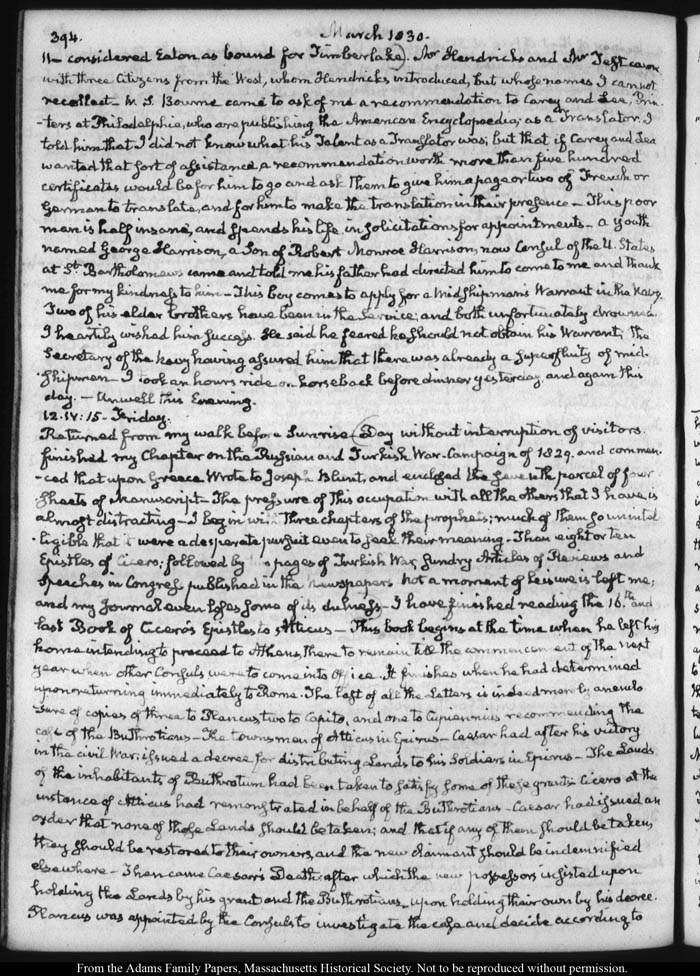 394. March 1830.
considered Eaton as bound for Timberlake). Mr Hendricks and Mr Test came
with three Citizens from the West, whom Hendricks introduced, but whose names I cannot
recollect. W. S. Bourne came to ask of me a recommendation to Carey and Lea, Prin-
-ters at Philadelphia, who are publishing the American Encyclopaedia, as a Translator. I
told him that I did not know what his Talent as a Translator was; but that if Carey and Lea
wanted that sort of assistance a recommendation worth more than five hundred
certificates would be for him to go and ask them to give him a page or two of French or
German to translate, and for him to make the translation in their presence — This poor
man is half insane, and spends his life in solicitations for appointments — a youth
named George Harrison, a Son of Robert Monroe Harrison, now Consul of the U. States
at St. Bartholomews came and told me his father had directed him to come to me and thank
me for my kindness to him — This boy comes to apply for a Midshipman's Warrant in the Navy.
Two of his elder brothers have been in the Service; and both unfortunately drowned.
I heartily wished him success. He said he feared he should not obtain his Warrant; the
Secretary of the Navy having assured him that there was already a superfluity of mid-
-shipmen — I took an hours ride on horseback before dinner yesterday, and again this
day. — Unwell this Evening.
12. IV: 15. Friday.
Returned from my walk before Sunrise — Day without interruption of visitors.
finished my Chapter on the Russian and Turkish War Campaign of 1829. and commen-
-ced that upon Greece. Wrote to Joseph Blunt, and enclosed the seventh parcel of four
sheets of Manuscript — The pressure of this occupation with all the others that I have, is
almost distracting — I begin with three chapters of the prophets; much of them so unintel-
-ligible that it were a desperate pursuit even to seek their meaning. Then eight or ten
Epistles of Cicero; followed by pages of Turkish War, sundry Articles of Reviews and
Speeches in Congress published in the newspapers. Not a moment of leisure is left me;
and my Journal even loses some of its dulness — I have finished reading the 16th and
last Book of Cicero's Epistles to Atticus — This book begins at the time when he left his
home intending to proceed to Athens, there to remain till the commencement of the next
year when other Consuls were to come into Office. It finishes when he had determined
upon returning immediately to Rome. The last of all the Letters is indeed merely an enclo-
-sure of copies of three to Plancus, two to Capito, and one to Cupiennius recommending the
case of the Buthrotians — The townsmen of Atticus in Epirus — Caesar had after his victory
in the civil War, issued a decree for distributing Lands to his Soldiers in Epirus — The Lands
of the inhabitants of Buthrotum had been taken to satisfy some of these grants. Cicero at the
instance of Atticus had remonstrated in behalf of the Buthrotians — Caesar had issued an
order that none of those Lands should be taken; and that if any of them should be taken,
they should be restored to their owners, and the new claimant should be indemnified
elsewhere — Then came Caesar's Death; after which the new possessors insisted upon
holding the Lands by his grant and the Buthrotians upon holding their own by his decree.
Plancus was appointed by the Consuls to investigate the case and decide according to
From the Adams Family Papers, Massachusetts Historical Society. Not to be reproduced without permission.